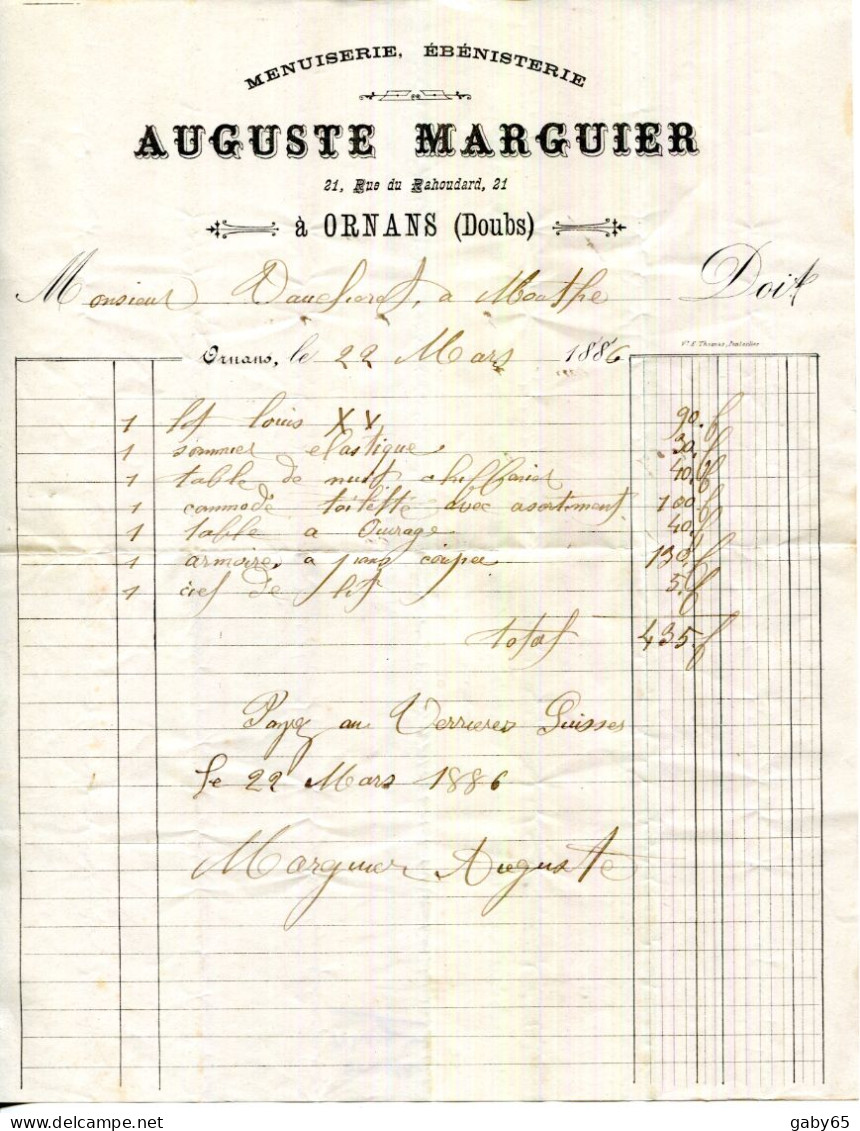 MENUISERIE, ÉBÉNISTERIE
AUGUSTE MARGUIER
21, Rue du Rahoudard, 21
à ORNANS (Doubs)
Monsieur a Mouthe Doit
Vve E. Thomas, Pontarlier
Ornans, le 22 Mars 1886
1 lit louis XV 90.f
1 sommier elastique 30.f
1 table de nuit chiffonier 40.f
1 commode toilette avec asortiment 100.f
1 table a Ouvrage 40.f
1 armoire, a pans coupée 130.f
1 ciel de lit 5.f
total 435.f
Payé au Verrieres Suisses
le 22 Mars 1886
Marguier Auguste
gaby65